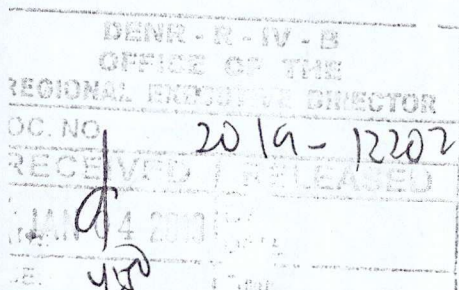 DENR - R - IV - B
OFFICE OF THE
REGIONAL EXECUTIVE DIRECTOR
OC. NO 2019-12202
RECEIVED / RELEASED
JAN 04